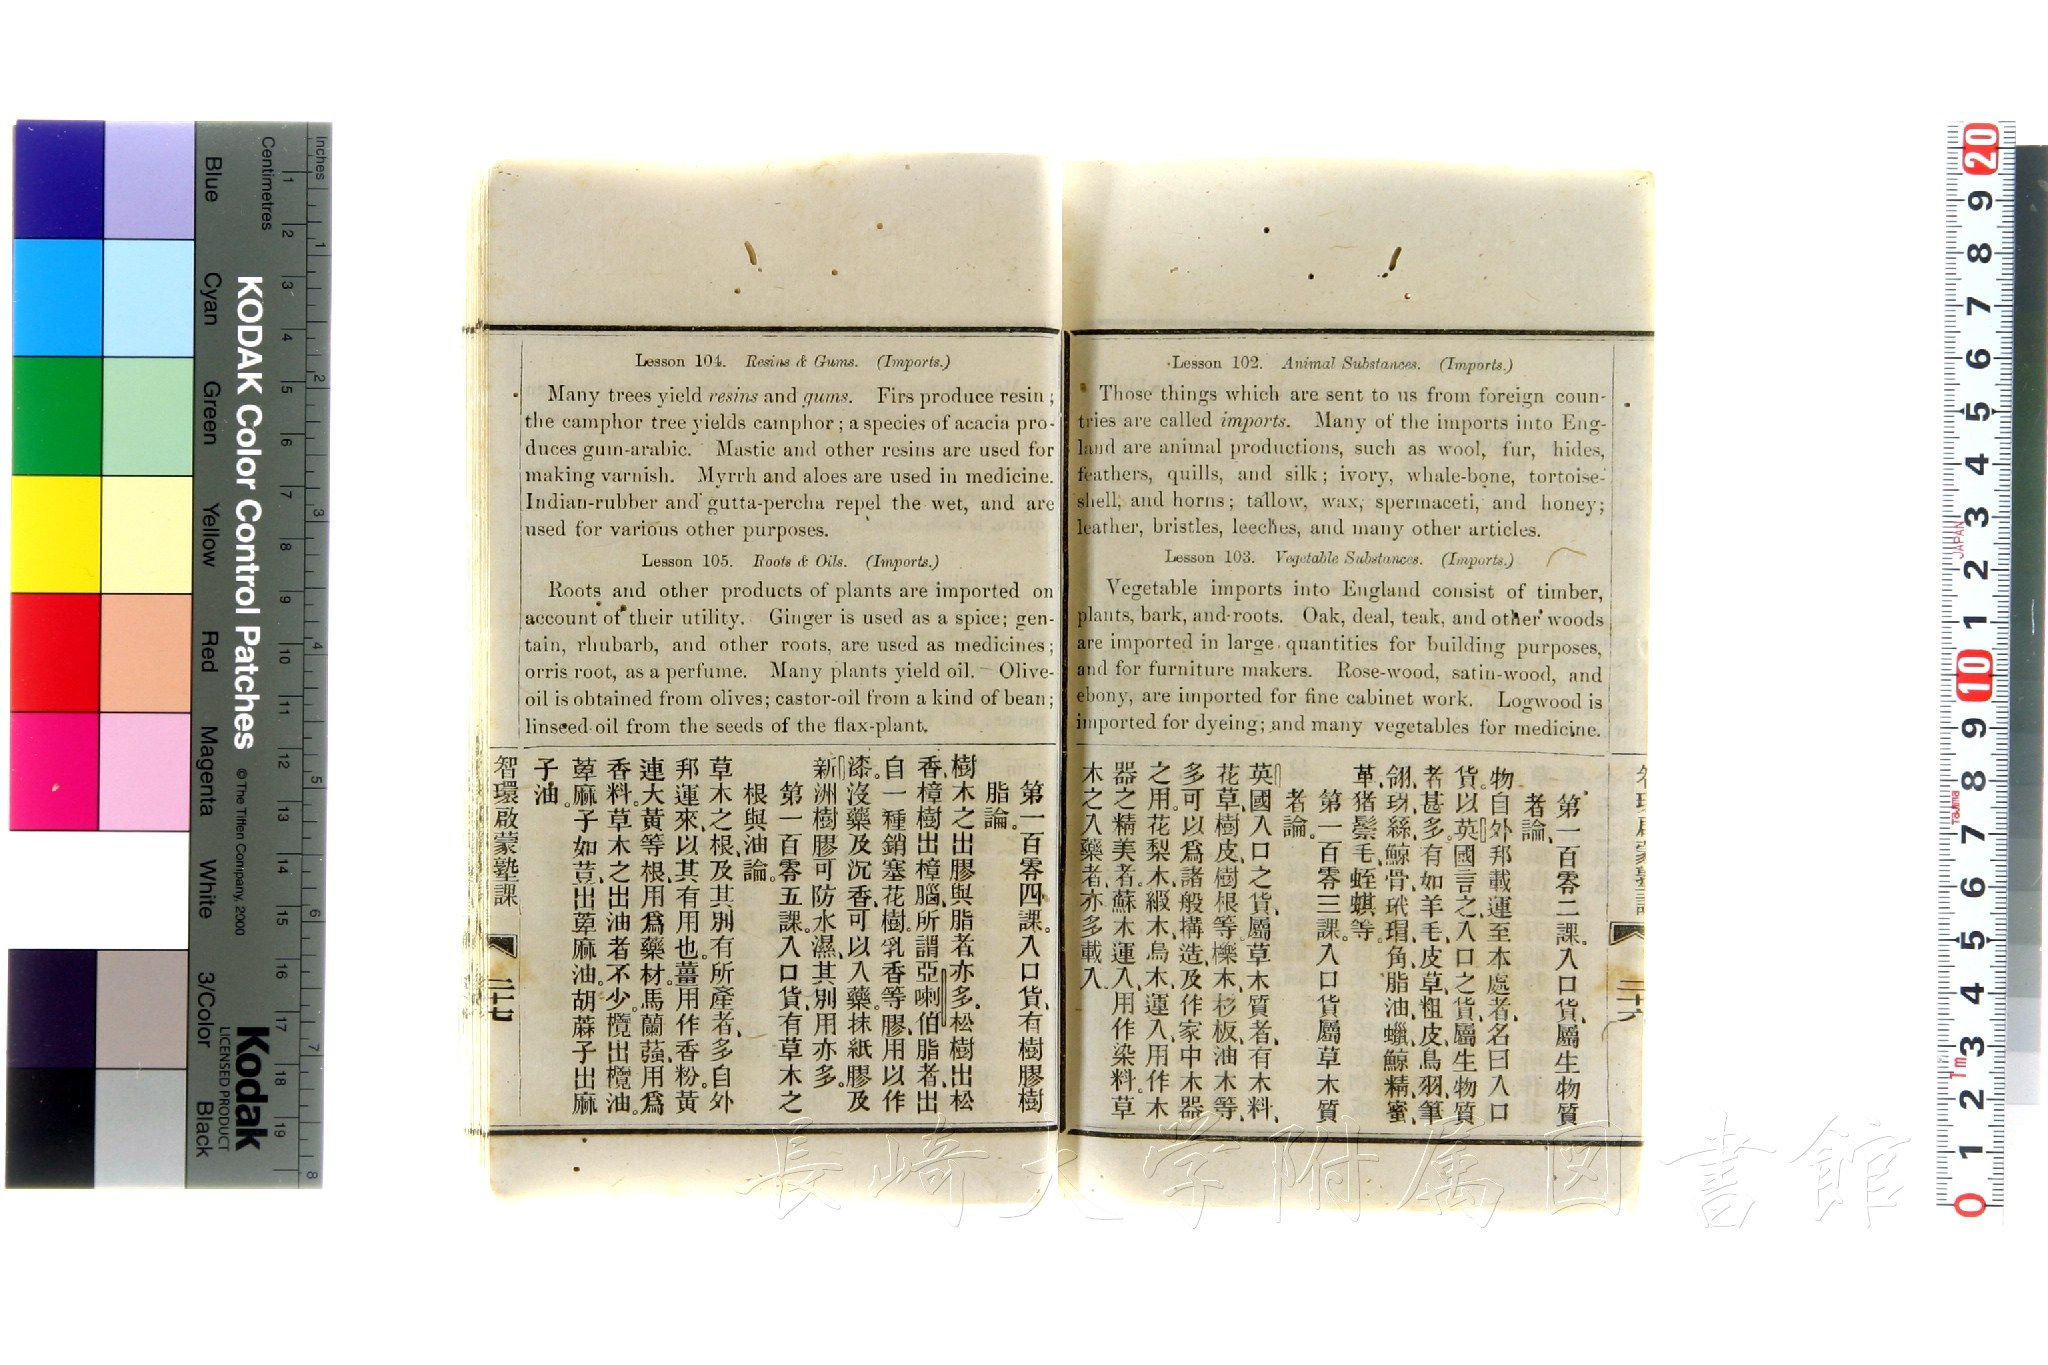 Lesson 102. Animal Substances. (Imports.)
Those things which are sent to us from foreign coun-
tries are called imports. Many of the imports into Eng-
land are animal productions, such as wool, fur, hides,
feathers, quills, and silk; ivory, whale-bone, tortoise-
shell, and horns; tallow, wax, spermaceti, and honey;
leather, bristles, leeches, and many other articles.
Lesson 103. Vegetable Substances. (Imports.)
Vegetable imports into England consist of timber,
plants, bark, and roots. Oak, deal, teak, and other woods
are imported in large quantities for building purposes,
and for furniture makers. Rose-wood, satin-wood, and
ebony, are imported for fine cabinet work. Logwood is
imported for dyeing; and many vegetables for medicine.
第一百零二課。入口貨屬生物質
者論、
物自外邦載運至本處者、名曰入口
貨。以英國言之、入口之貨、屬生物質
者甚多。有如羊毛、皮草、粗皮、鳥羽、筆
翎、玡、絲、鯨骨、玳瑁、角、脂油、蠟、鯨精、蜜、
革、猪鬃毛、蛭蜞等。
第一百零三課。入口貨屬草木質
者論。
英國入口之貨、屬草木質者、有木料、
花草、樹皮、樹根等。櫟木、杉板、油木等、
多可以爲諸般搆造、及作家中木器
之用。花梨木、緞木、烏木、運入、用作木
器之精美者。蘇木運入、用作染料。草
木之入藥者、亦多載入
二十六
Lesson 104. Resins & Gums. (Imports.)
Many trees yield resins and gums. Firs produce resin;
the camphor tree yields camphor; a species of acacia pro-
duces gum-arabic. Mastic and other resins are used for
making varnish. Myrrh and aloes are used in medicine.
Indian-rubber and gutta-percha repel the wet, and are
used for various other purposes.
Lesson 105. Roots & Oils. (Imports.)
Roots and other products of plants are imported on
account of their utility. Ginger is used as a spice; gen-
tain, rhubarb, and other roots, are used as medicines;
orris root, as a perfume. Many plants yield oil. Olive-
oil is obtained from olives; castor-oil from a kind of bean;
linseed oil from the seeds of the flax-plant.
第一百零四課。入口貨、有樹膠樹
脂論。
樹木之出膠與脂者、亦多、松樹出松
香、樟樹出樟腦、所謂亞喇伯脂者、出
自一種銷塞花樹。乳香等膠、用以作
漆。沒藥及沉香、可以入藥。抹紙膠及
新洲樹膠、可防水濕、其別用亦多。
第一百零五課。入口貨、有草木之
根與油論。
草木之根、及其別有所產者、多自外
邦運來、以其有用也。薑用作香粉。黃
連、大黃等根、用爲藥材。馬蘭蔃、用爲
香料。草木之出油者不少。欖出欖油。
萆麻子如荳、出萆麻油。胡蔴子出麻
子油。
智環啟蒙塾課
二十七
KODAK Color Control Patches
© The Tiffen Company, 2000
Kodak
LICENSED PRODUCT
Inches
Centimetres
Blue
Cyan
Green
Yellow
Red
Magenta
White
3/Color
Black
1 2 3 4 5 6 7 8 9 10 11 12 13 14 15 16 17 18 19
1 2 3 4 5 6 7 8
20 9 8 7 6 5 4 3 2 1 10 9 8 7 6 5 4 3 2 1 0
JAPAN
Tajima
1m
長崎大学附属図書館